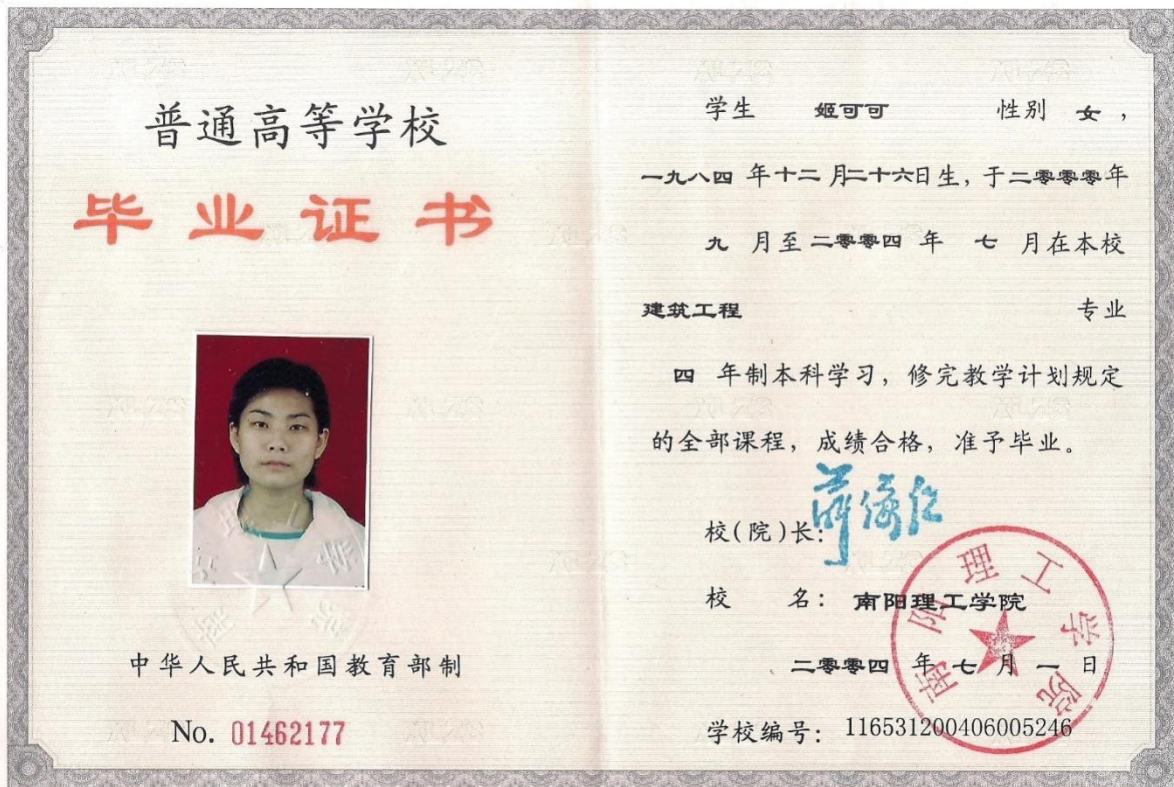 普通高等学校
毕业证书
中华人民共和国教育部制
No. 01462177
学生 姬可可 性别 女，
一九八四 年十二 月二十六日生，于二零零零年
九 月至二零零四 年 七 月在本校
建筑工程 专业
四 年制本科学习，修完教学计划规定
的全部课程，成绩合格，准予毕业。
校(院)长：
校 名：南阳理工学院
二零零四 年 七 月 一 日
学校编号：116531200406005246
南阳理工学院